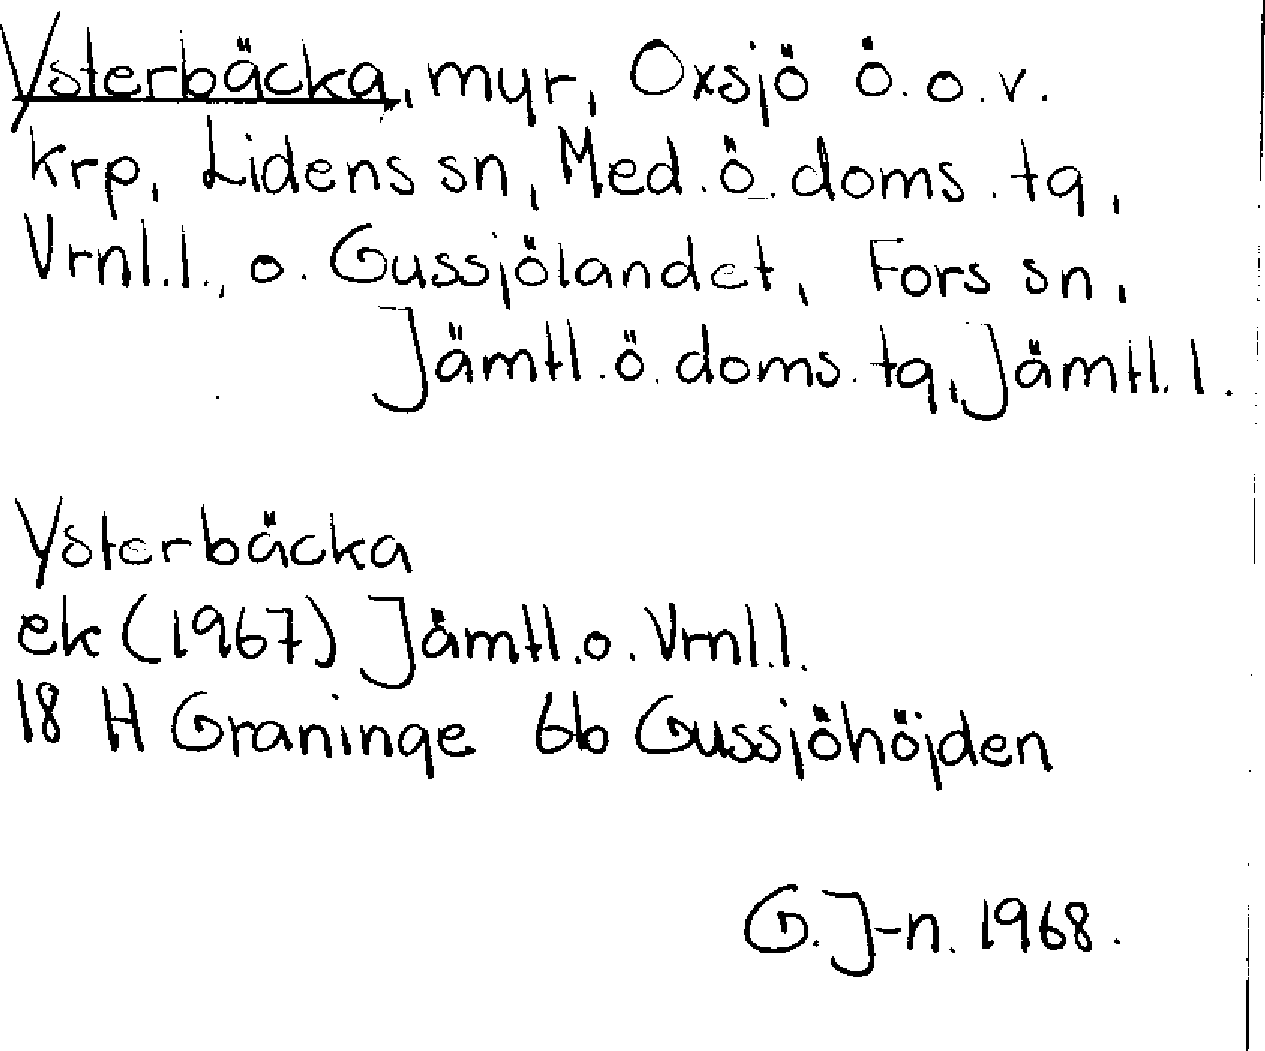 Ysterbäcka, myr, Oxsjö ö. o. v.
krp, Lidens sn, Med. ö. doms. tg,
Vrnl.l., o. Gussjölandet, Fors sn,
Jämtl. ö. doms. tg, Jämtl. l.
Ysterbäcka
ek (1967) Jämtl. o. Vrnl.l.
18 H Graninge 6b Gussjöhöjden
G. J-n. 1968.